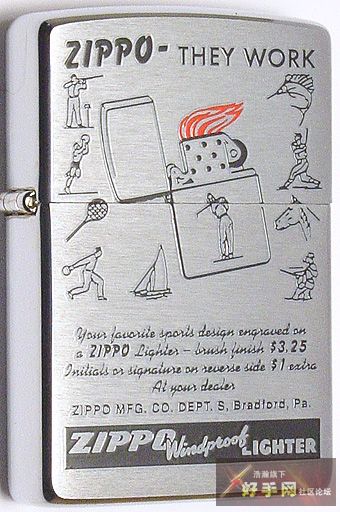 ZIPPO- THEY WORK
Your favorite sports design engraved on
a ZIPPO Lighter – brush finish $3.25
Initials or signature on reverse side $1 extra
At your dealer
ZIPPO MFG. CO. DEPT. S, Bradford, Pa.
ZIPPO Windproof LIGHTER
浩瀚旗下
好手网 社区论坛